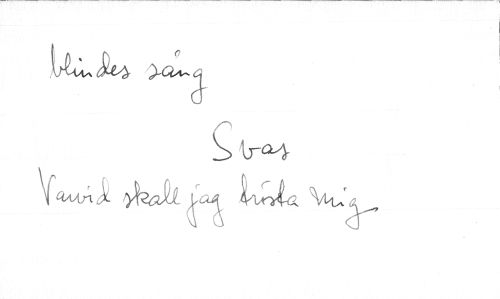 blindes sång
Svas
Varvid skall jag trösta mig